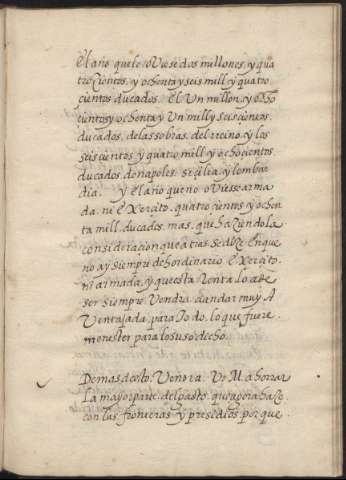 El año que le oviese dos millones, y qua
trocientos, y ochenta y seis mill y quatro
cientos ducados. El Un millon, y ocho
cientos y ochenta y Un mill y seiscientos
ducados, de las sobras, del reino, y los
seiscientos, y quatro mill, y ochocientos
ducados, de napoles, sicilia, y lombar
dia. y El año que no oviesse arma
da. ni Exercito. quatrocientos y ochen
ta mill. ducados. mas. que haziendo la
consideracion que atras se dize. En que
no ay siempre de hordinario Exercito.
ni armada, y que esta Renta lo a de
ser siempre. Vendra. a andar muy A
Ventajada, para Todo. lo que fuere.
menester para lo suso decho.
Demas desto. Vendra. V. M. ahorrar
La mayor parte. del gasto. que agora haze.
con las fronteras y presidios por que.